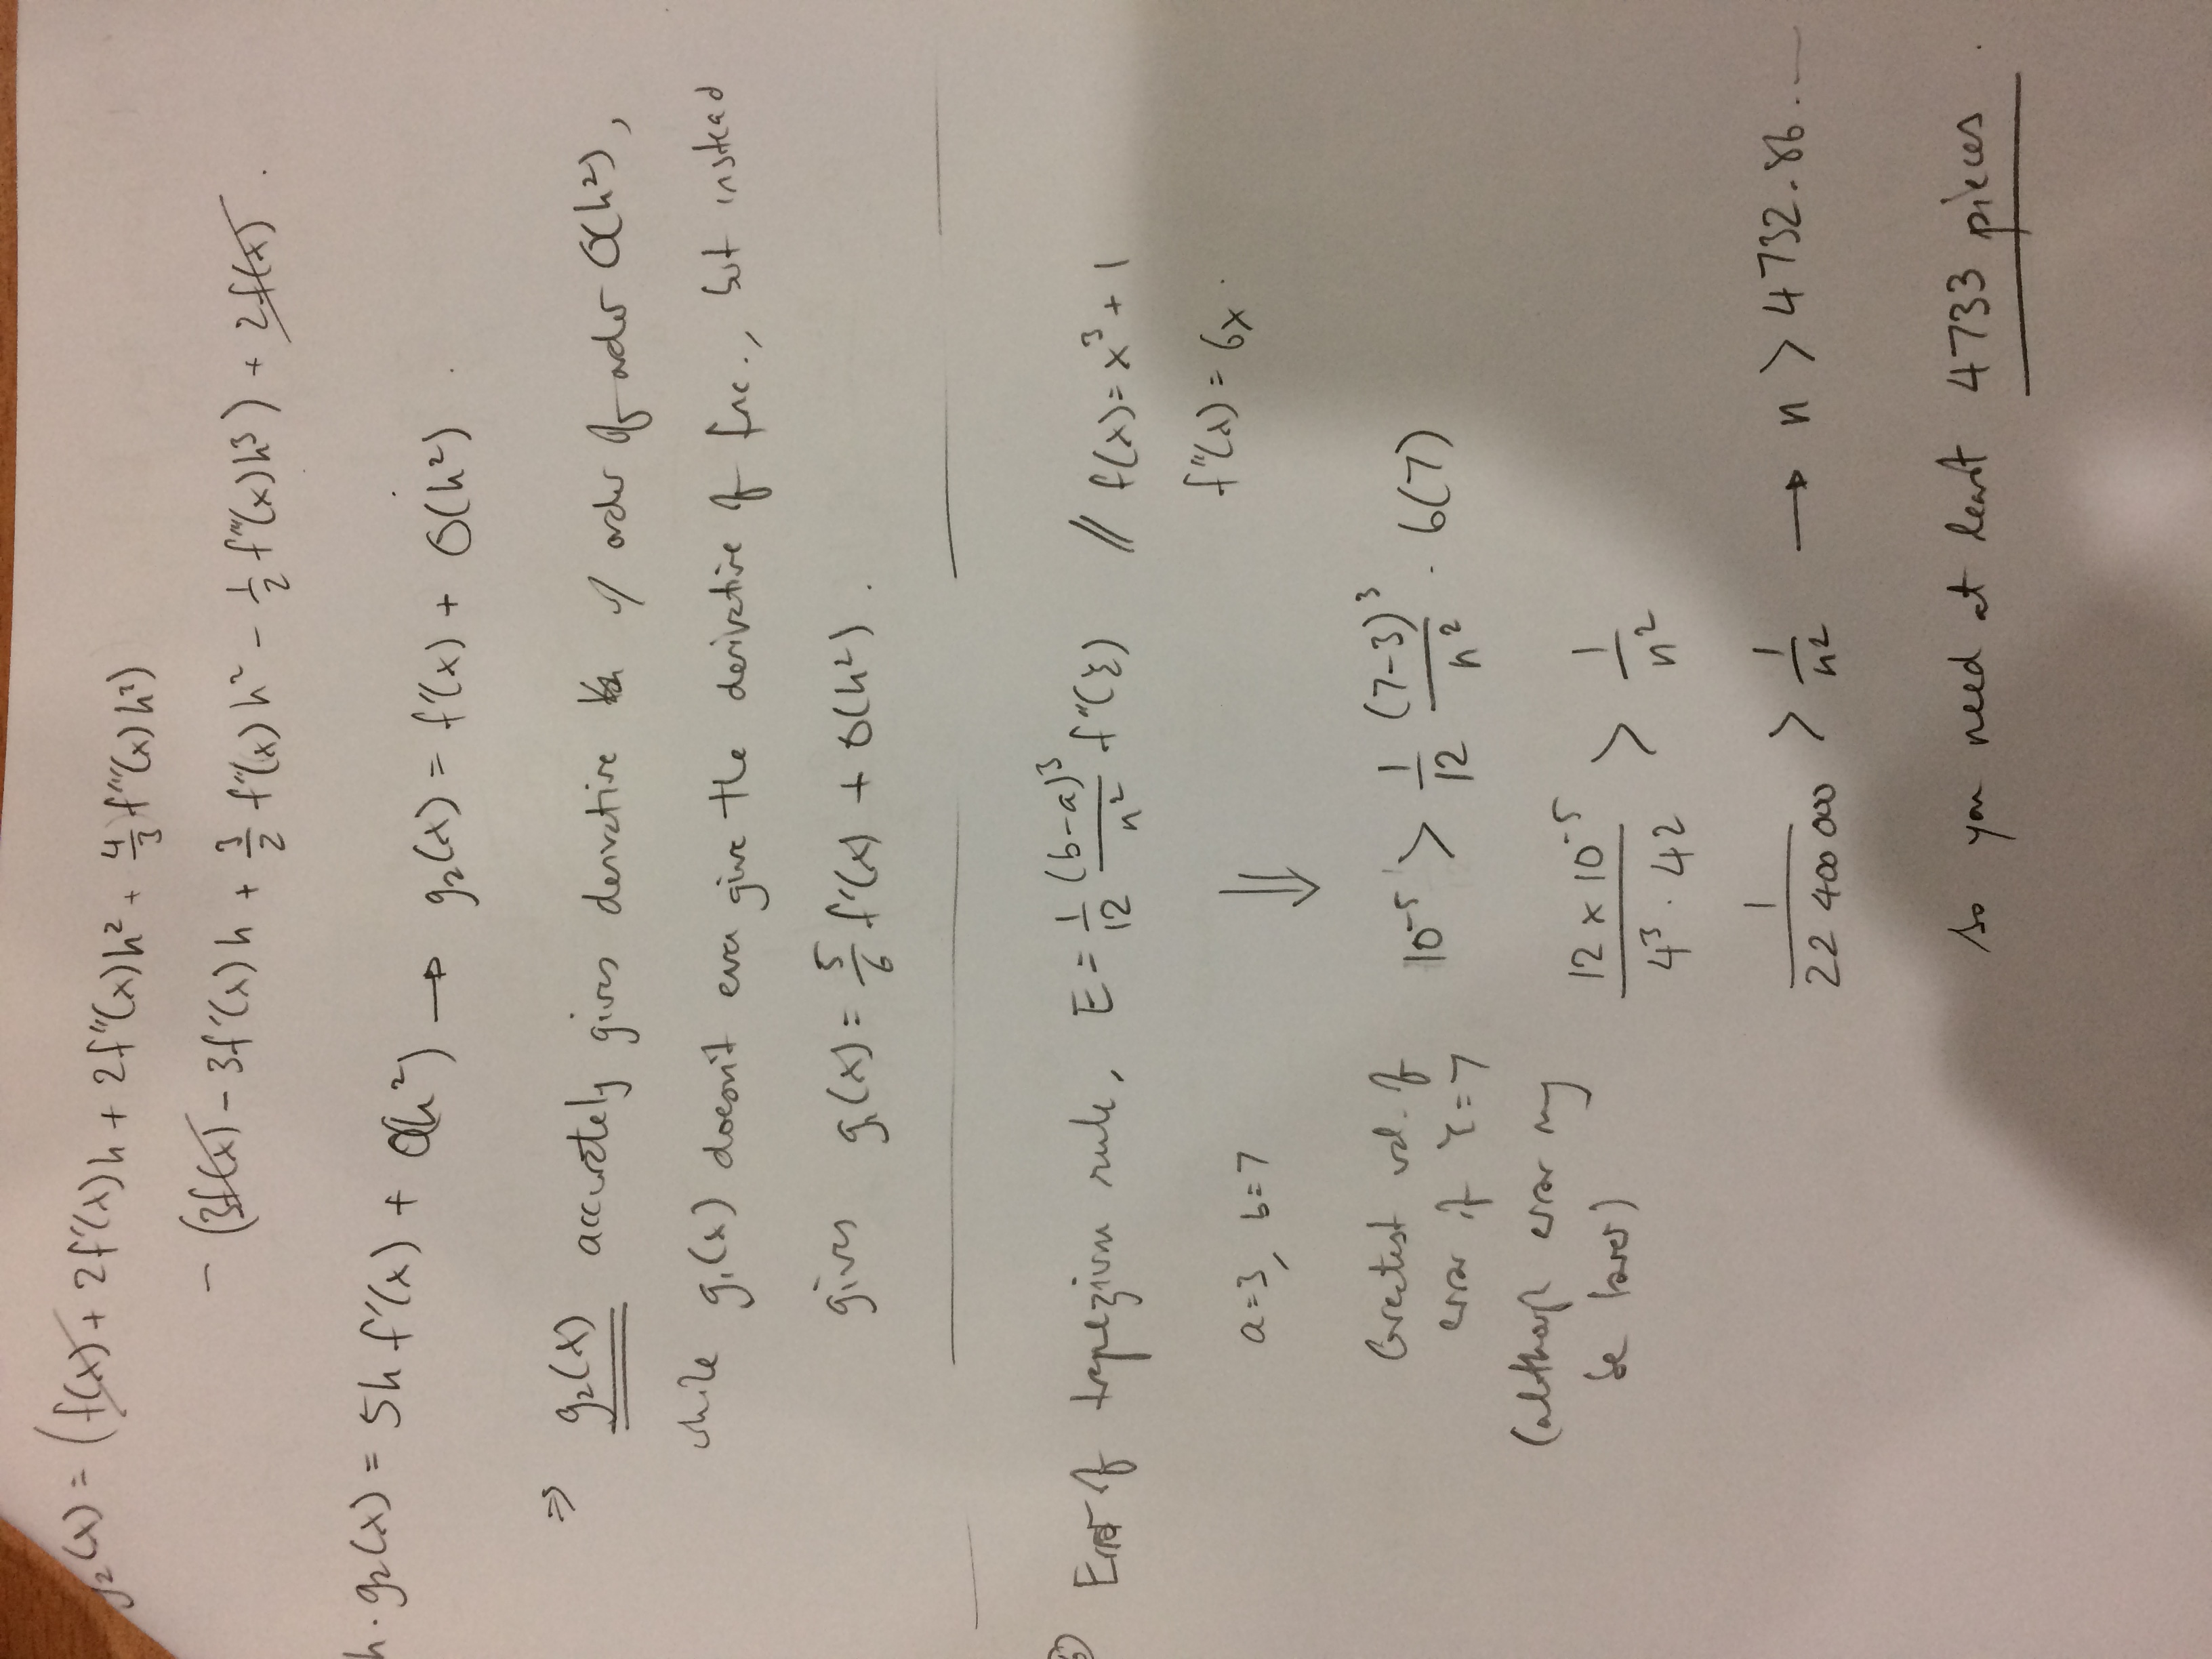 g₂(x) = (f(x) + 2f'(x)h + 2f''(x)h² + 4/3 f'''(x)h³)
- (3f(x) - 3f'(x)h + 3/2 f''(x)h² - 1/2 f'''(x)h³) + 2f(x).
h · g₂(x) = 5h f'(x) + O(h²) → g₂(x) = f'(x) + O(h²).
⇒ g₂(x) accurately gives derivative w/ order of order O(h²),
while g₁(x) doesn't even give the derivative of fnc., but instead
gives g₁(x) = 5/6 f'(x) + O(h²).
Error of trapezium rule, E = 1/12 (b-a)³/n² f''(ξ) // f(x) = x³ + 1
f''(x) = 6x.
a=3, b=7 ⇓
Greatest val. of
error if ξ=7
(although error may
be lower)
10⁻⁵ > 1/12 (7-3)³/n² · 6(7)
12 x 10⁻⁵/4³ · 42 > 1/n²
1/22 400 000 > 1/n² → n > 4732.86...
so you need at least 4733 pieces.